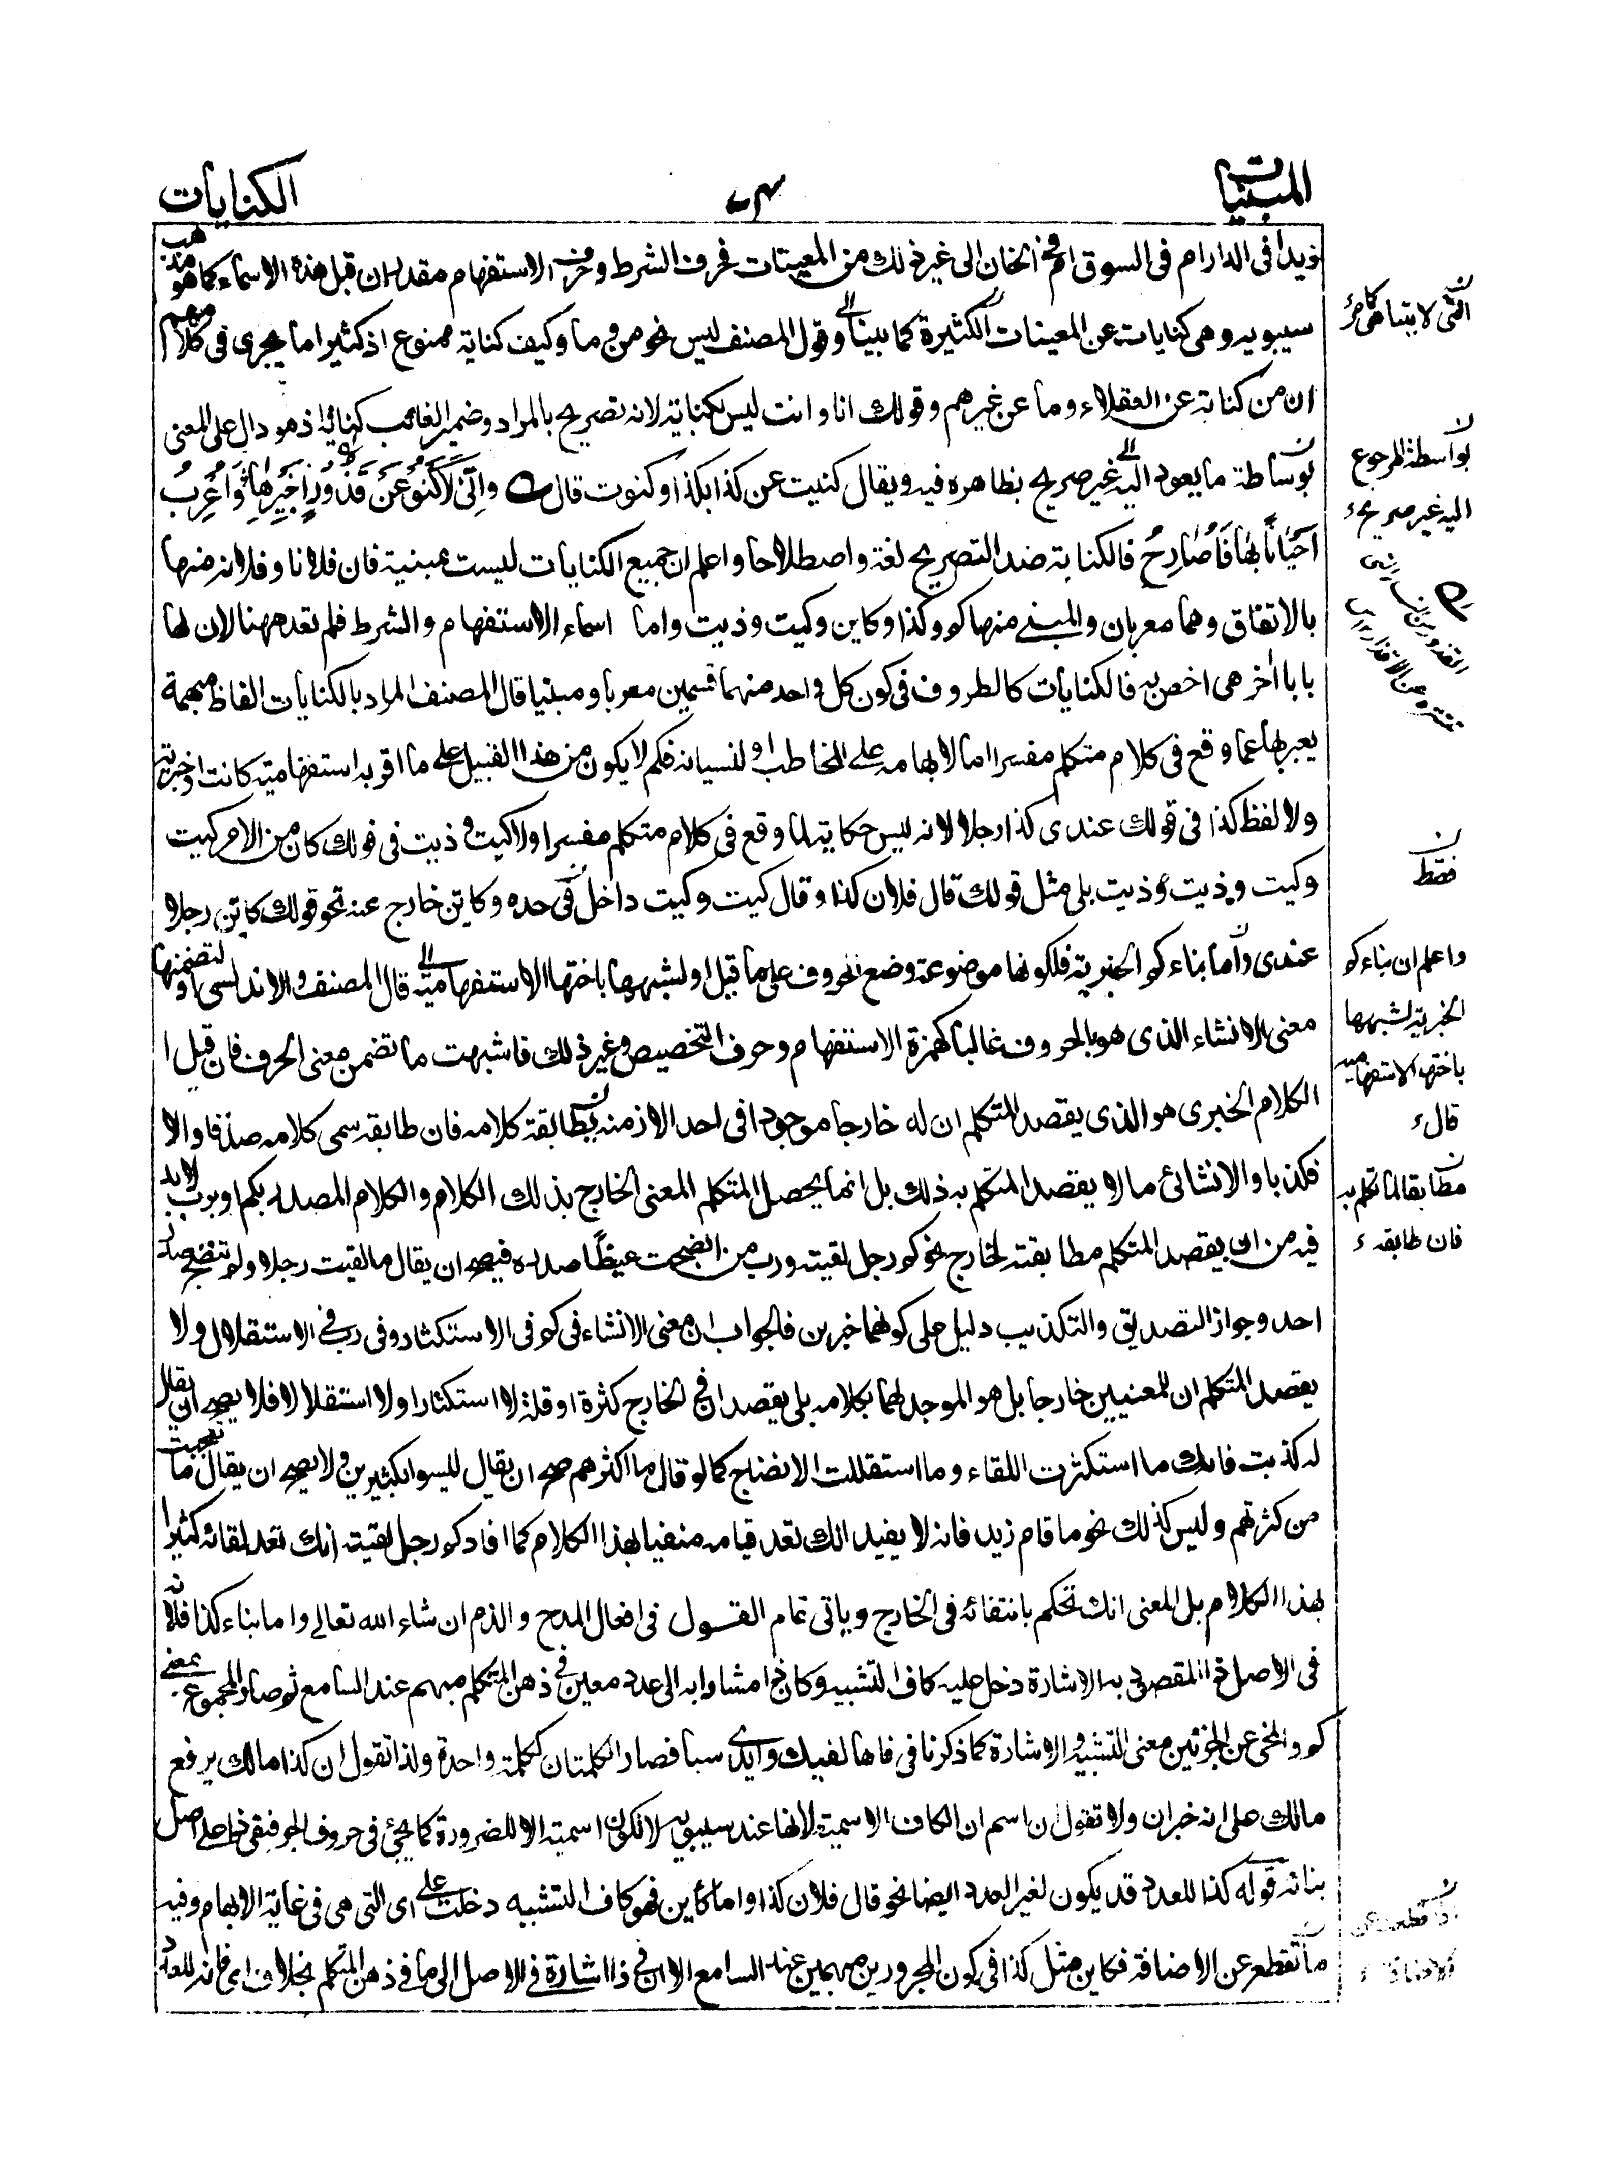 المبنيات
الكنايات
زيدا في الدار ام في السوق ام في الخان الى غير ذلك من المعينات فحرف الشرط وحرف الاستفهام مقدران قبل هذه الاسماء كما هو مذهب
سيبويه وهى كنايات عن المعينات الكثيرة كما بينا وقول المصنف ليس نحو من وما وكيف كناية ممنوع اذ كثيرا ما يجرى في كلامهم
ان من كناية عن العقلاء وما عن غيرهم وقولك انا وانت ليس بكناية لانه تصريح بالمراد وضمير الغائب كناية اذ هو دال على المعنى
بوساطة ما يعود اليه غير صريح بظاهره فيه ويقال كنيت عن كذا بكذا وكنوت قال وانى لاكنو عن قذور بغيرها واعرب
احيانا بها فاصارح فالكناية ضد التصريح لغة واصطلاحا واعلم ان جميع الكنايات ليست بمبنية فان فلانا وفلانه منها
بالاتفاق وهما معربان والمبنى منها كم وكذا وكاين وكيت وذيت واما اسماء الاستفهام والشرط فلم تعد ههنا لان لها
بابا اخر هى اخص به فالكنايات كالظروف في كون كل واحد منهما قسمين معربا ومبنيا قال المصنف المراد بالكنايات الفاظ مبهمة
يعبر بها عما وقع في كلام متكلم مفسرا اما لابهامه على المخاطب او لنسيانه فكم لا يكون من هذا القبيل على ما اقر به استفهامية كانت او خبرية
ولا لفظ كذا في قولك عندى كذا رجلا لانه ليس حكاية لما وقع في كلام متكلم مفسرا ولا كيت وذيت في قولك كان من الامر كيت
وكيت وذيت وذيت بلى مثل قولك قال فلان كذا وقال كيت وكيت داخل في حده وكاين خارج عنه نحو قولك كاين رجلا
عندى واما بناء كم الخبرية فلكونها موضوعة وضع الحروف على ما قيل او لشبهها باختها الاستفهامية قال المصنف والاندلسى او لتضمنها
معنى الانشاء الذى هو بالحروف غالبا كهمزة الاستفهام وحرف التحضيض وغير ذلك فاشبهت ما تضمن معنى الحرف فان قيل
الكلام الخبرى هو الذى يقصد المتكلم ان له خارجا موجودا في احد الازمنه يطابقه كلامه فان طابقه سمى كلامه صدقا والا
فكذبا والانشائى ما لا يقصد المتكلم به ذلك بل انما يحصل المتكلم المعنى الخارج بذلك الكلام والكلام المصدر بكم او برب لابد
فيه من ان يقصد المتكلم مطابقته لخارج نحو كم رجل لقيته ورب من انضجت غيظا صدره فيصح ان يقال ما لقيت رجلا ولم تنضج صدر
احد وجواز التصديق والتكذيب دليل على كونهما خبرين فالجواب ان معنى الانشاء في كم في الاستكثار وفى رب في الاستقلال ولا
يقصد المتكلم ان للمعنيين خارجا بل هو الموجد لهما بكلامه بلى يقصد ان في الخارج كثرة او قلة لا استكثارا ولا استقلالا فلا يصح ان يقال
له كذبت فانك ما استكثرت اللقاء وما استقللت الانضاج كما لو قال ما اكثرهم صح ان يقال ليسوا بكثيرين ولا يصح ان يقال ما تعجبت
من كثرتهم وليس كذلك نحو ما قام زيد فانه لا يفيد انك تعد قيامه منفيا بهذا الكلام كما افاد كم رجل لقيته انك تعد لقائه كثيرا
بهذا الكلام بل المعنى انك تحكم بانتفائه في الخارج ويأتى تمام القول في افعال المدح والذم ان شاء الله تعالى واما بناء كذا فلانه
في الاصل ذا المقصود به الاشارة دخل عليه كاف التشبيه وكان ذا مشارا به الى عدد معين في ذهن المتكلم مبهم عند السامع ثم صار المجموع بمعنى
كم وانمحى عن الجزئين معنى التشبيه والاشارة كما ذكرنا في فاها لفيك وايدى سبا فصار الكلمتان ككلمة واحدة ولذا تقول ان كذا مالك برفع
مالك على انه خبر ان ولا تقول ان اسم ان الكاف الاسمية لانها عند سيبويه لا تكون اسمية الا للضرورة كما يجئ في حروف الجر فبقى ذا على اصل
بنائه قوله كذا للعدد قد يكون لغير العدد ايضا نحو قال فلان كذا واما كأين فهو كاف التشبيه دخلت على اى التى هى في غاية الابهام وفيه
ما تقطع عن الاضافة فكاين مثل كذا في كون المجرورين مبهمين عند السامع الا ان في ذا اشارة في الاصل الى ما في ذهن المتكلم بخلاف اى فانه للعدد
بواسطة المرجوع
اليه غير صريح
فقط
واعلم ان بناء كم
الخبرية لشبهها
باختها الاستفهامية
قال
مطابقا لما تكلم به
فان طابقه